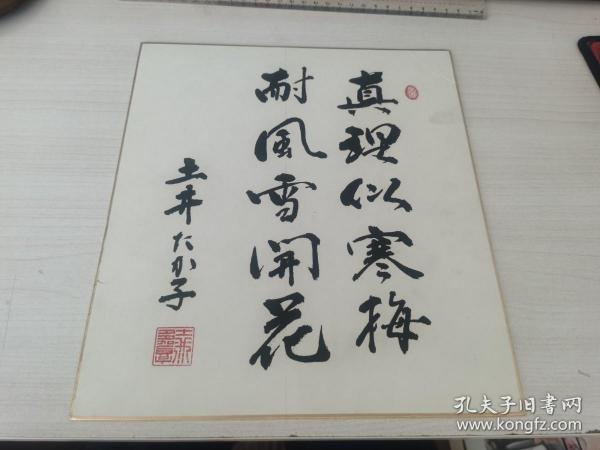 真理似寒梅
耐風雪開花
土井たか子
孔夫子旧书网
www.kongfz.com